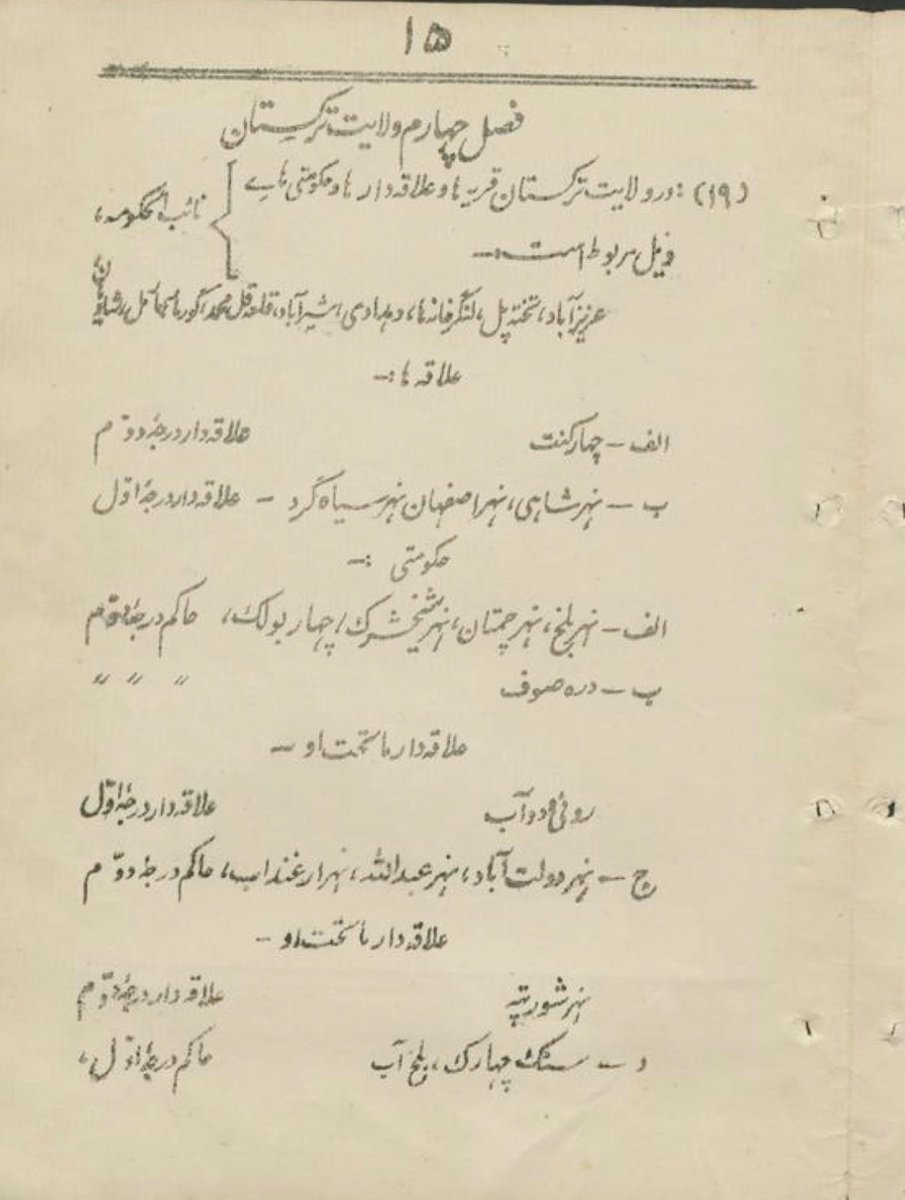 ۱۵
فصل چهارم ولایت ترکستان
(۱۹) : در ولایت ترکستان قریه ها و علاقه دار ها و حکومتی هاے
ذیل مربوط است :—
نائب الحکومه،
عزیز آباد، تخته پل، لنگرخانه ها، دهدادی، شیرآباد، قلعه قل محمد، گورمار،
علاقه ها :—
الف — چهارکنت علاقه دار درجهٔ دوّم
ب — نهر شاهی، نهر اصفهان نهر سیاه گرد — علاقه دار درجهٔ اوّل
حکومتی :—
الف — نهر بلخ، نهر چمتان، نهر شیخ شرک، چهار بولک، حاکم درجهٔ دوّم
ب — دره صوف 〃 〃 〃
علاقه دار ماتحت او —
روئی دوآب علاقه دار درجهٔ اوّل
ج — نهر دولت آباد، نهر عبدالله، نهر ارغنداب، حاکم درجهٔ دوّم
علاقه دار ماتحت او —
نهر شورتپه علاقه دار درجهٔ دوّم
د — سنگ چهارک، بلخ آب حاکم درجهٔ اوّل،